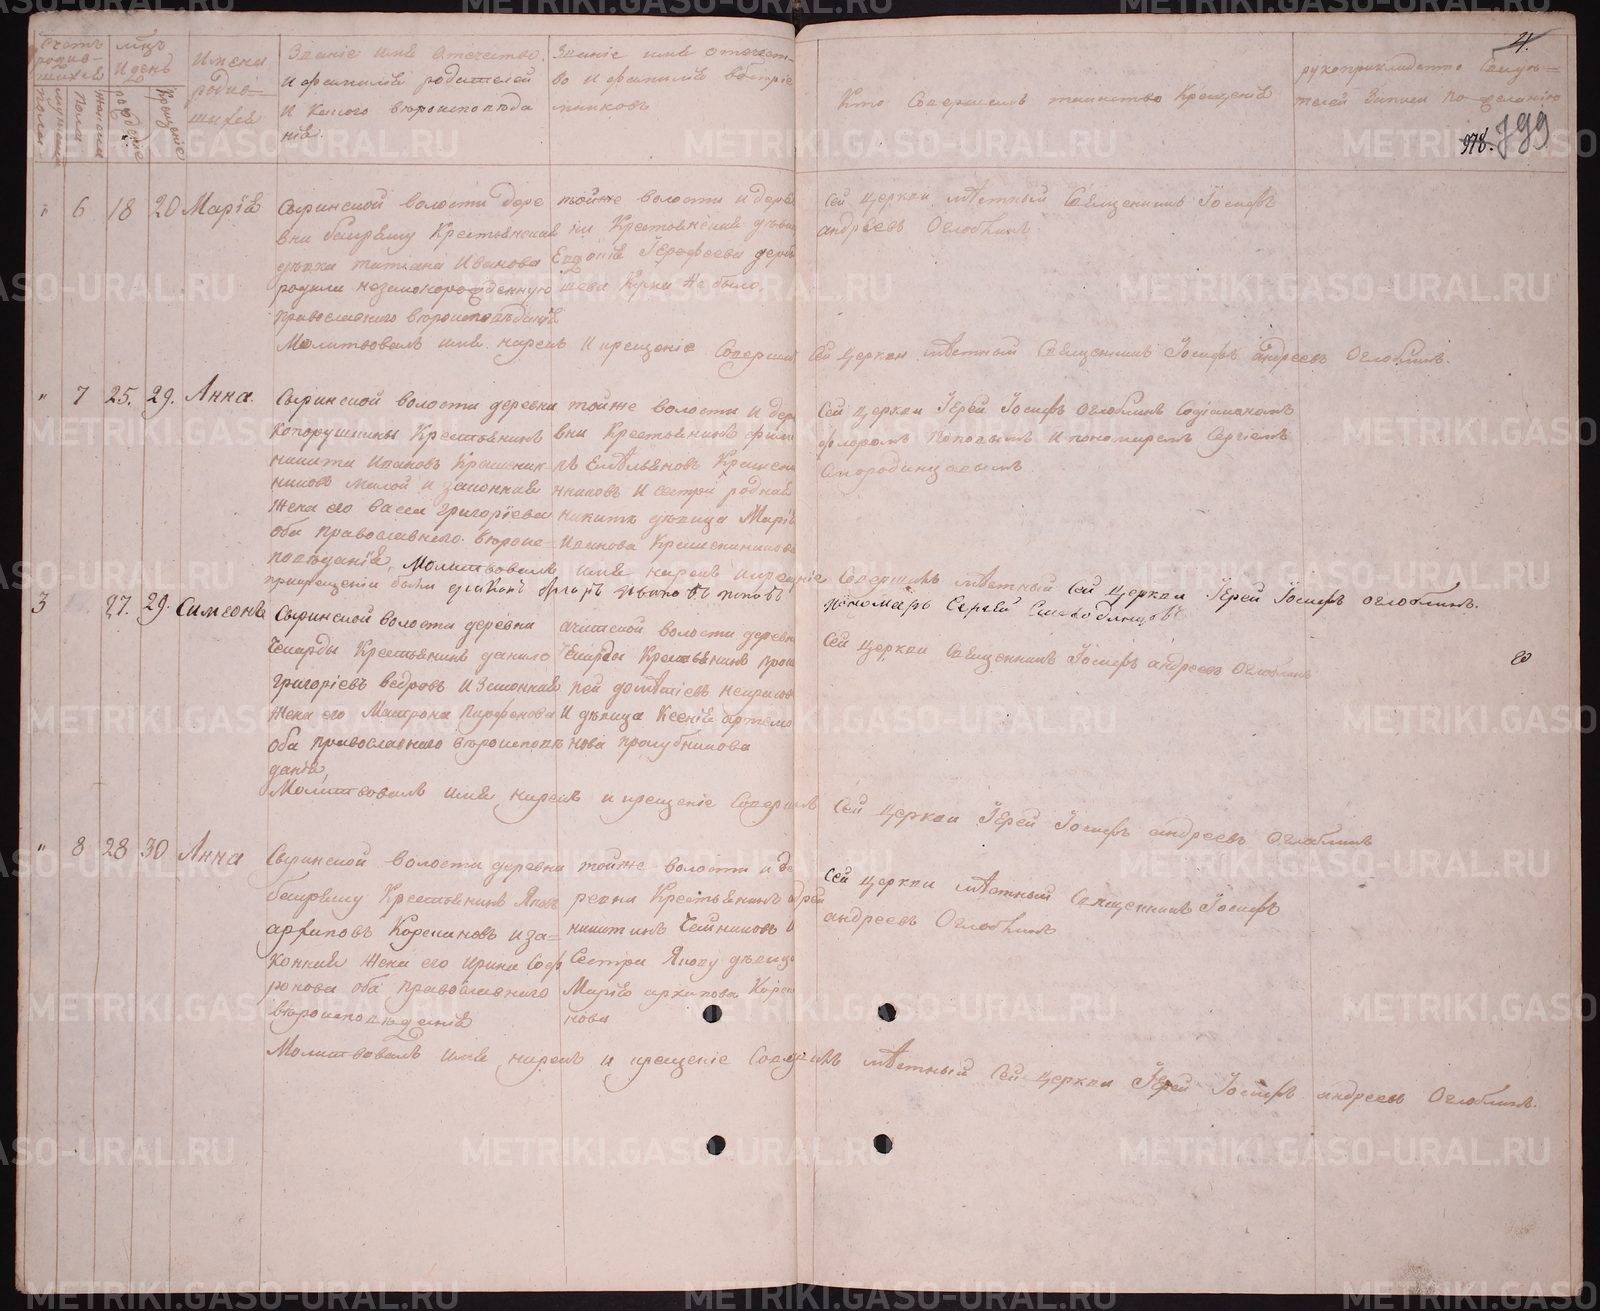 21.
978. 799
Счетъ родив-шихся
Мѣсяцъ и день
Имена родив-шихся
Званіе имя отечество и фамилія родителей и какого вѣроисповѣданія.
Званіе имя отечество и фамилія воспріемниковъ
Кто совершалъ таинство крещенія
рукоприкладство свидѣтелей записи по желанію
мужеска пола
женска пола
рожденіе
крещеніе
" 6 18 20 Марія
Сыринской волости дере
вни Крестьянская
дѣвка Татіана Иванова
родила незаконорожденную
православнаго вѣроисповѣданія
тойже волости и дерев
ни Крестьянская дѣвица
Ерофеева
Кума не было.
Сей церкви мѣстный Священникъ Іосифъ
андреевъ Оглоблинъ
Молитвовалъ имя нарекъ и крещеніе Совершилъ Сей церкви мѣстный Священникъ Іосифъ андреевъ Оглоблинъ.
" 7 25. 29. Анна.
Сыринской волости деревни
Крестьянинъ
никита Ивановъ Крашенин
никовъ малой и законная
жена его васса григорьева
оба православнаго вѣроис-
повѣданія
тойже волости и дере
вни Крестьянинъ
Емельяновъ Крашени
нниковъ и сестра родная
никитѣ дѣвица Марія
Иванова Крашенинникова
Сей церкви Іерей Іосифъ оглоблинъ Содіакономъ
флоромъ поповымъ и пономаремъ Сергіемъ
Смородинцовымъ
Молитвовалъ имя нарекъ и крещеніе Совершилъ мѣстный Сей церкви Іерей Іосифъ оглоблинъ.
при крещеніи были діаконъ Флоръ Ивановъ поповъ
пономарь Сергей
3 27. 29. Симеонъ
Сыринской волости деревни
Крестьянинъ данило
григорьевъ ведровъ и законная
жена его Матрона Парфенова
оба православнаго вѣроисповѣ
данія
ачитской волости деревни
Крестьянинъ
и дѣвица Ксенія артемо
нова
Сей церкви Священникъ Іосифъ андреевъ Оглоблинъ
Молитвовалъ имя нарекъ и крещеніе Совершилъ Сей церкви Іерей Іосифъ андреевъ Оглоблинъ
" 8 28 30 Анна
Сыринской волости деревни
Крестьянинъ Яковъ
архиповъ и за-
конная жена его Ирина Соф
ронова оба православнаго
вѣроисповѣданія
тойже волости и де
ревни Крестьянинъ
никитинъ и
Сестра Якову дѣвица
Марія архипова
нова
Сей церкви мѣстный Священникъ Іосифъ
андреевъ Оглоблинъ
Молитвовалъ имя нарекъ и крещеніе Совершилъ мѣстный Сей церкви Іерей Іосифъ андреевъ Оглоблинъ.
METRIKI.GASO-URAL.RU